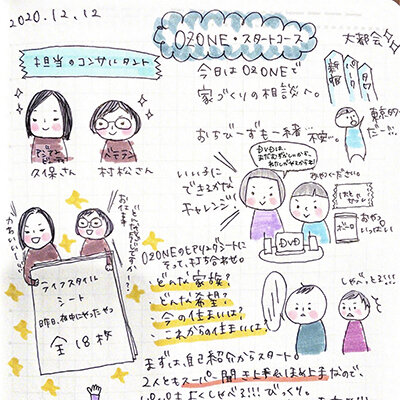 2020.12.12
OZONE・スタートコース
大都会
担当のコンサルタント
今日はOZONEで
家づくりの相談へ。
新宿
パーク
タワー
東京タワー
だー!!!
おちびーずも一緒…不安…。
久保さん
村松さん
いい子に
できるかな
チャレンジ
DVDは、
DVD
おやつ
いっぱい
ボーロ
お仕事
かわいいー!!
ライフスタイル
シート
昨日、夜中にやったやつ
全18枚
OZONEのヒアリングシートに
そって、打ち合わせ。
どんな家族?
どんな希望?
今の住まいは?
これからの住まいは?
しゃべ、とる!!!
まずは、自己紹介からスタート。
2人ともスーパー聞き上手&ほめ上手なので、